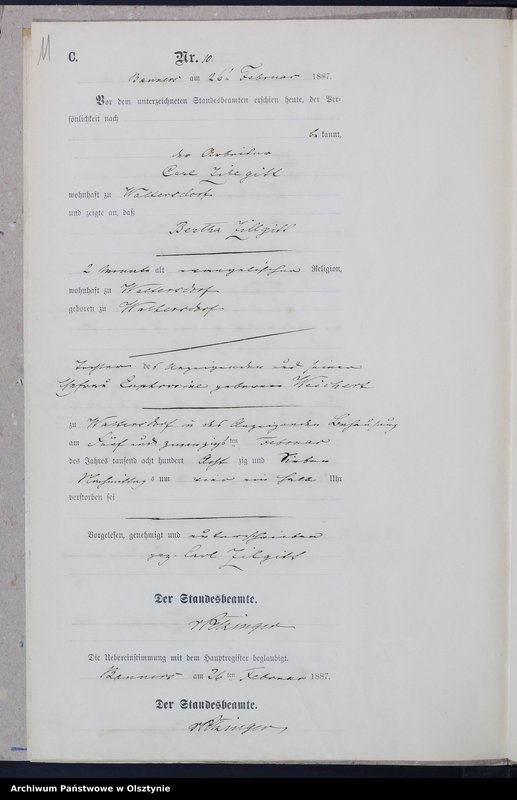 11
C. Nr. 10
Banners am 26ten Februar 1887.
Vor dem unterzeichneten Standesbeamten erschien heute, der Per-
sönlichkeit nach
be kannt,
der Arbeiter
Carl Zillgitt
wohnhaft zu Waltersdorf
und zeigte an, daß
Bertha Zillgitt
2 Monate alt evangelischer Religion,
wohnhaft zu Waltersdorf
geboren zu Waltersdorf
Tochter des Anzeigenden und seiner
Ehefrau geborene Weichert
zu Waltersdorf in des Anzeigenden Behausung
am Fünf und zwanzigsten Februar
des Jahres tausend acht hundert Acht zig und Sieben
Nachmittags um vier ein halb Uhr
verstorben sei
Vorgelesen, genehmigt und unterschrieben
gez. Carl Zillgitt
Der Standesbeamte.
Die Uebereinstimmung mit dem Hauptregister beglaubigt.
Banners am 26ten Februar 1887.
Der Standesbeamte.
Archiwum Państwowe w Olsztynie